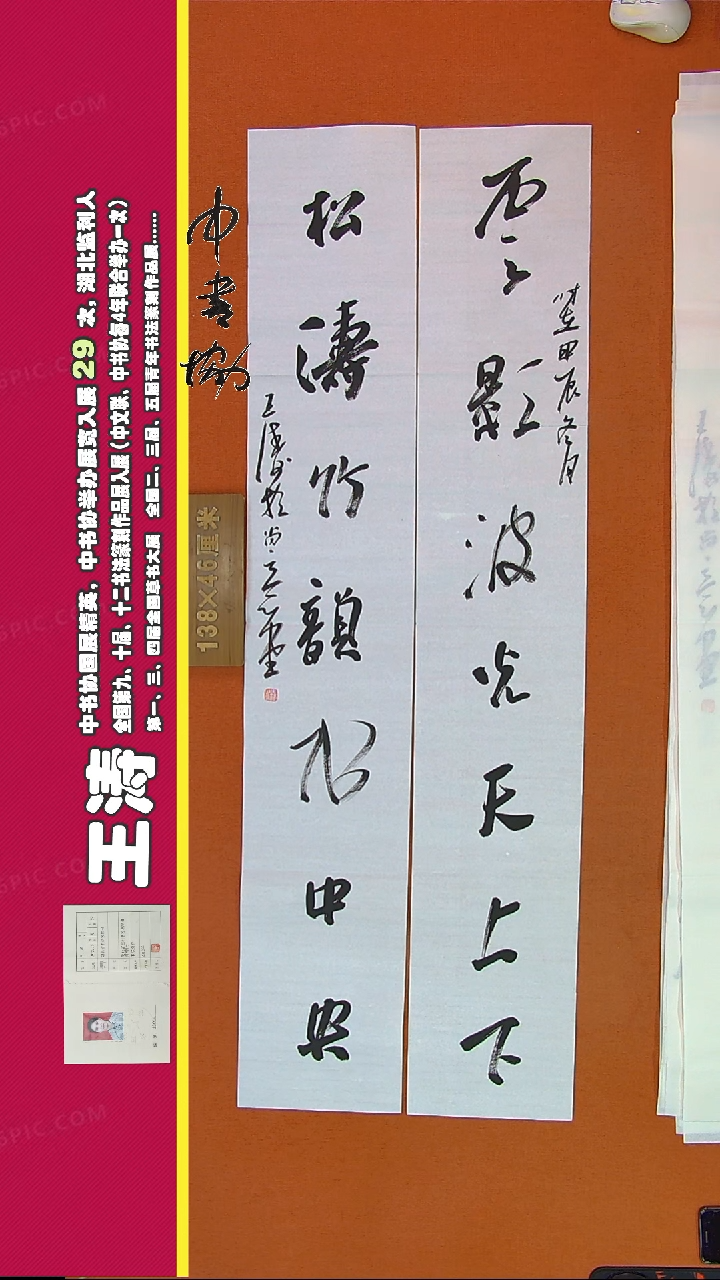 雲影波光天上下
歲在甲辰冬月
松濤竹韻水中央
中書協
138×46厘米
王涛
中书协国展精英，中书协举办展览入展 29 次，湖北监利人
全国第九、十届、十二书法篆刻作品展入展（中文联、中书协每4年联合举办一次）
第一、三、四届全国草书大展 全国二、三届、五届青年书法篆刻作品展......